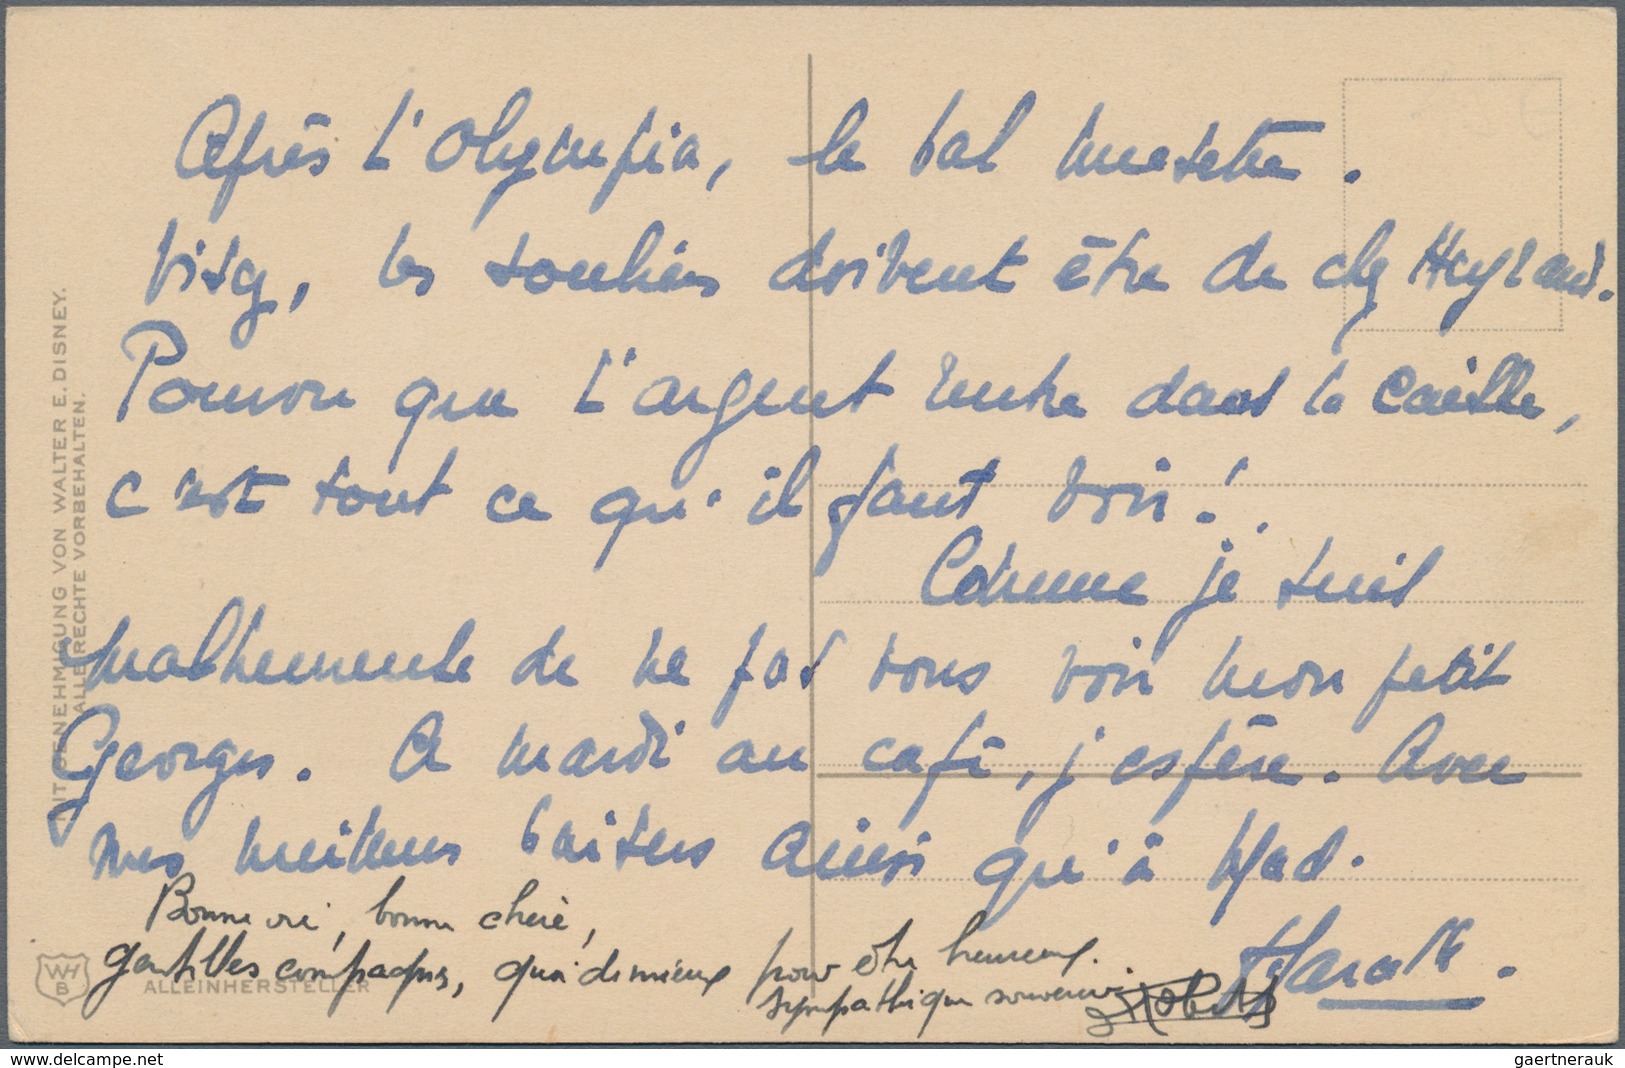 Après l'Olympia, le bal musette.
les souliers doivent être de chz Heyraud.
Pourvu que l'argent rentre dans la caisse,
c'est tout ce qu'il faut voir!.
Comme je suis
malheureuse de ne pas vous voir mon petit
Georges. A mardi au café, j'espère. Avec
mes meilleurs baisers ainsi qu'à Mad.
Bonne vie, bonne chère,
gentilles compagnes, quoi de mieux pour être heureux.
sympathique souvenir
Robert
MIT GENEHMIGUNG VON WALTER E. DISNEY.
ALLE RECHTE VORBEHALTEN.
WH
B
ALLEINHERSTELLER
gaertnerauk @ delcampe.net